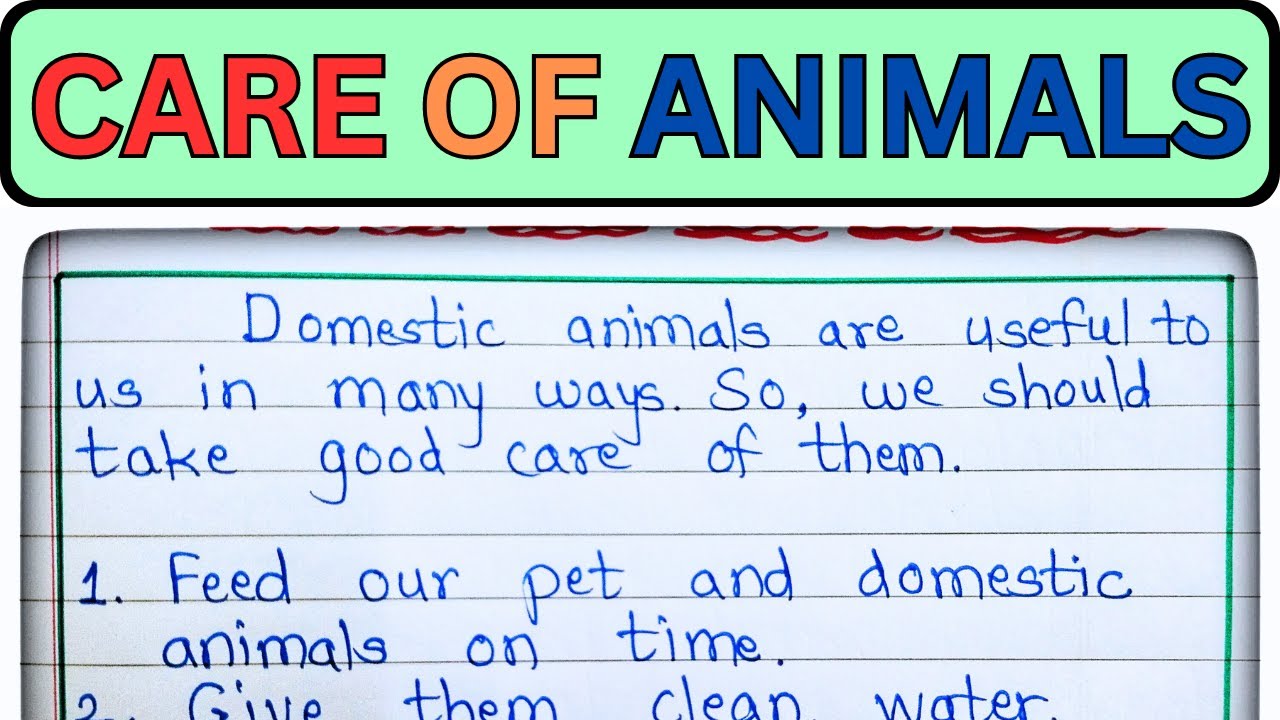 CARE OF ANIMALS
Domestic animals are useful to
us in many ways. So, we should
take good care of them.
1. Feed our pet and domestic
animals on time.
2. Give them clean water.